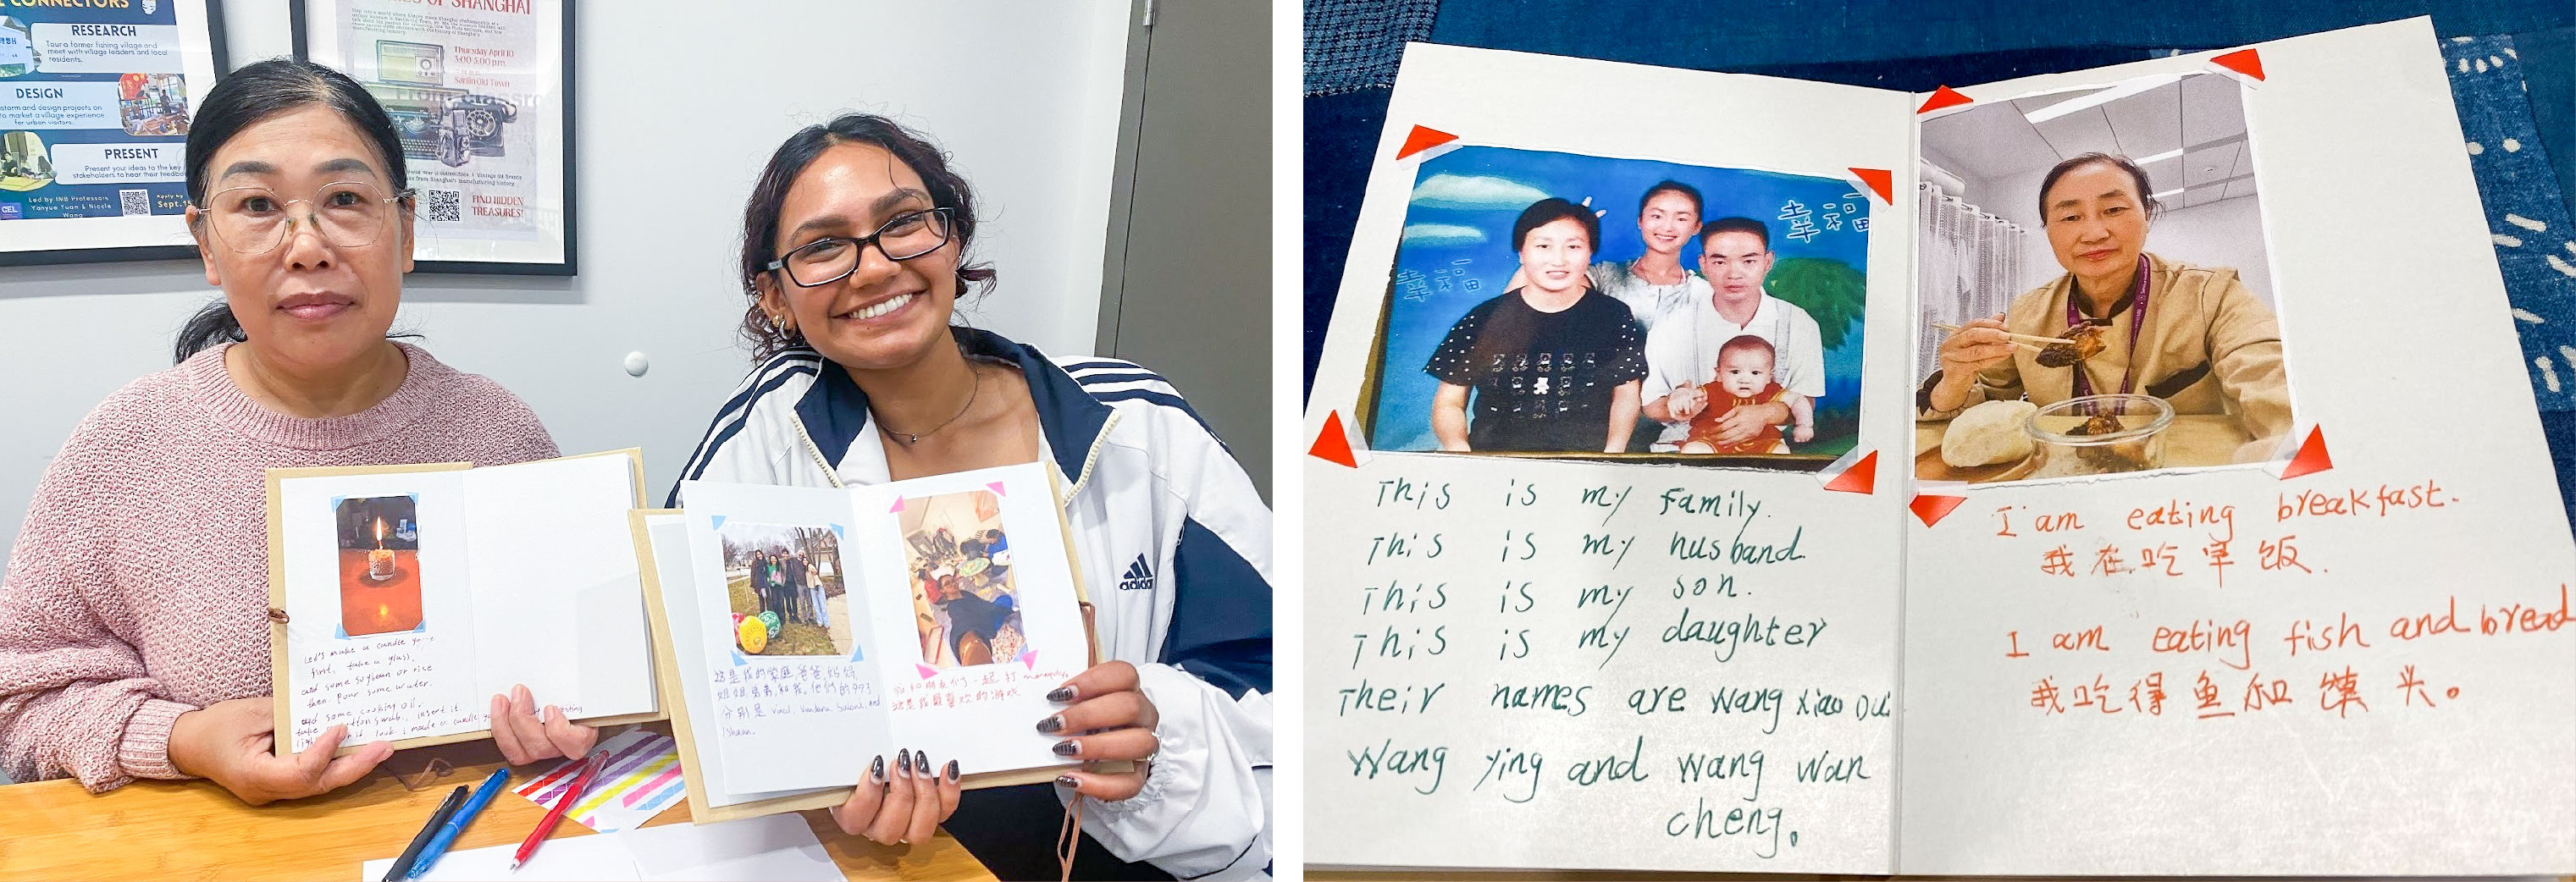 CONNECTORS
RESEARCH
Tour a former fishing village and
meet with village leaders and local
residents.
DESIGN
and design projects on
to market a village experience
for urban visitors.
PRESENT
Present your ideas to the key
stakeholders to hear their feedback
Led by INB Professors
Yanyue Yuan & Nicole
Wang
CEL
Sept.
OF SHANGHAI
Thursday April 10
3:00-5:00 p.m.
Sanlin Old Town
FIND HIDDEN
TREASURES!
Let's make a candle
first, take a glass,
add some soybean or rice
then pour some water.
add some cooking oil,
insert it.
look i made a candle
这是我的家庭,爸爸,妈妈,
姐姐,弟弟,和我。他们的名字
分别是
Ishaan.
我和朋友们一起打 monopoly,
这是我最喜欢的游戏
adidas
幸福
幸福
This is my family.
This is my husband.
This is my son.
This is my daughter
Their names are Wang xiao
Wang ying and wang wan
cheng。
I am eating breakfast.
我在吃早饭.
I am eating fish and bread
我吃得鱼和馍头。